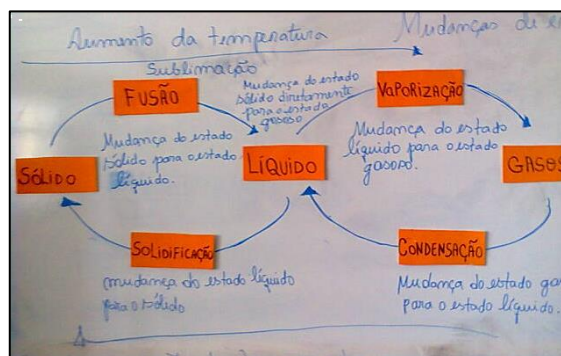 Aumento da temperatura
Mudanças de
Sublimação
FUSÃO
Mudança do estado
sólido diretamente
para o estado
gasoso
VAPORIZAÇÃO
Mudança do estado
sólido para o estado
líquido.
Mudança do estado
líquido para o estado
gasoso.
SÓLIDO
LÍQUIDO
GASOS
SOLIDIFICAÇÃO
CONDENSAÇÃO
mudança do estado líquido
para o sólido
Mudança do estado gas
para o estado líquido.